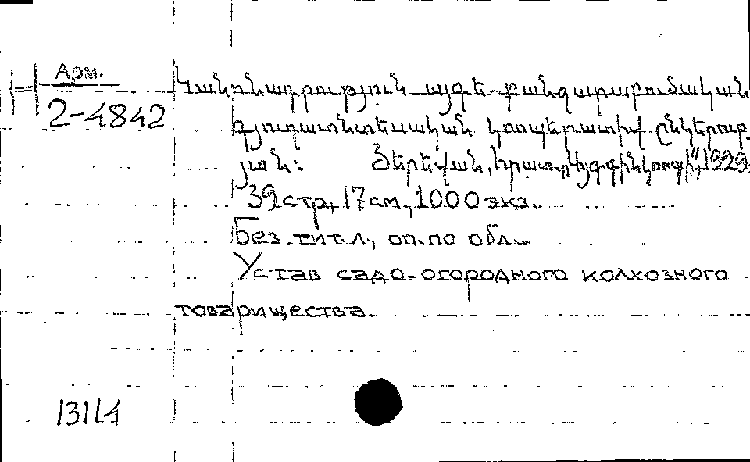 Арм.
2-4842
Կանոնադրություն այգե-բանջարաբուծական
գյուղատնտեսական կոոպերատիվ ընկերու
յան: Յերեվան, 1929.
39 стр., 17 см., 1000 экз.
Без тит. л., оп. по обл.
Устав садо-огородного колхозного
товарищества.
13114